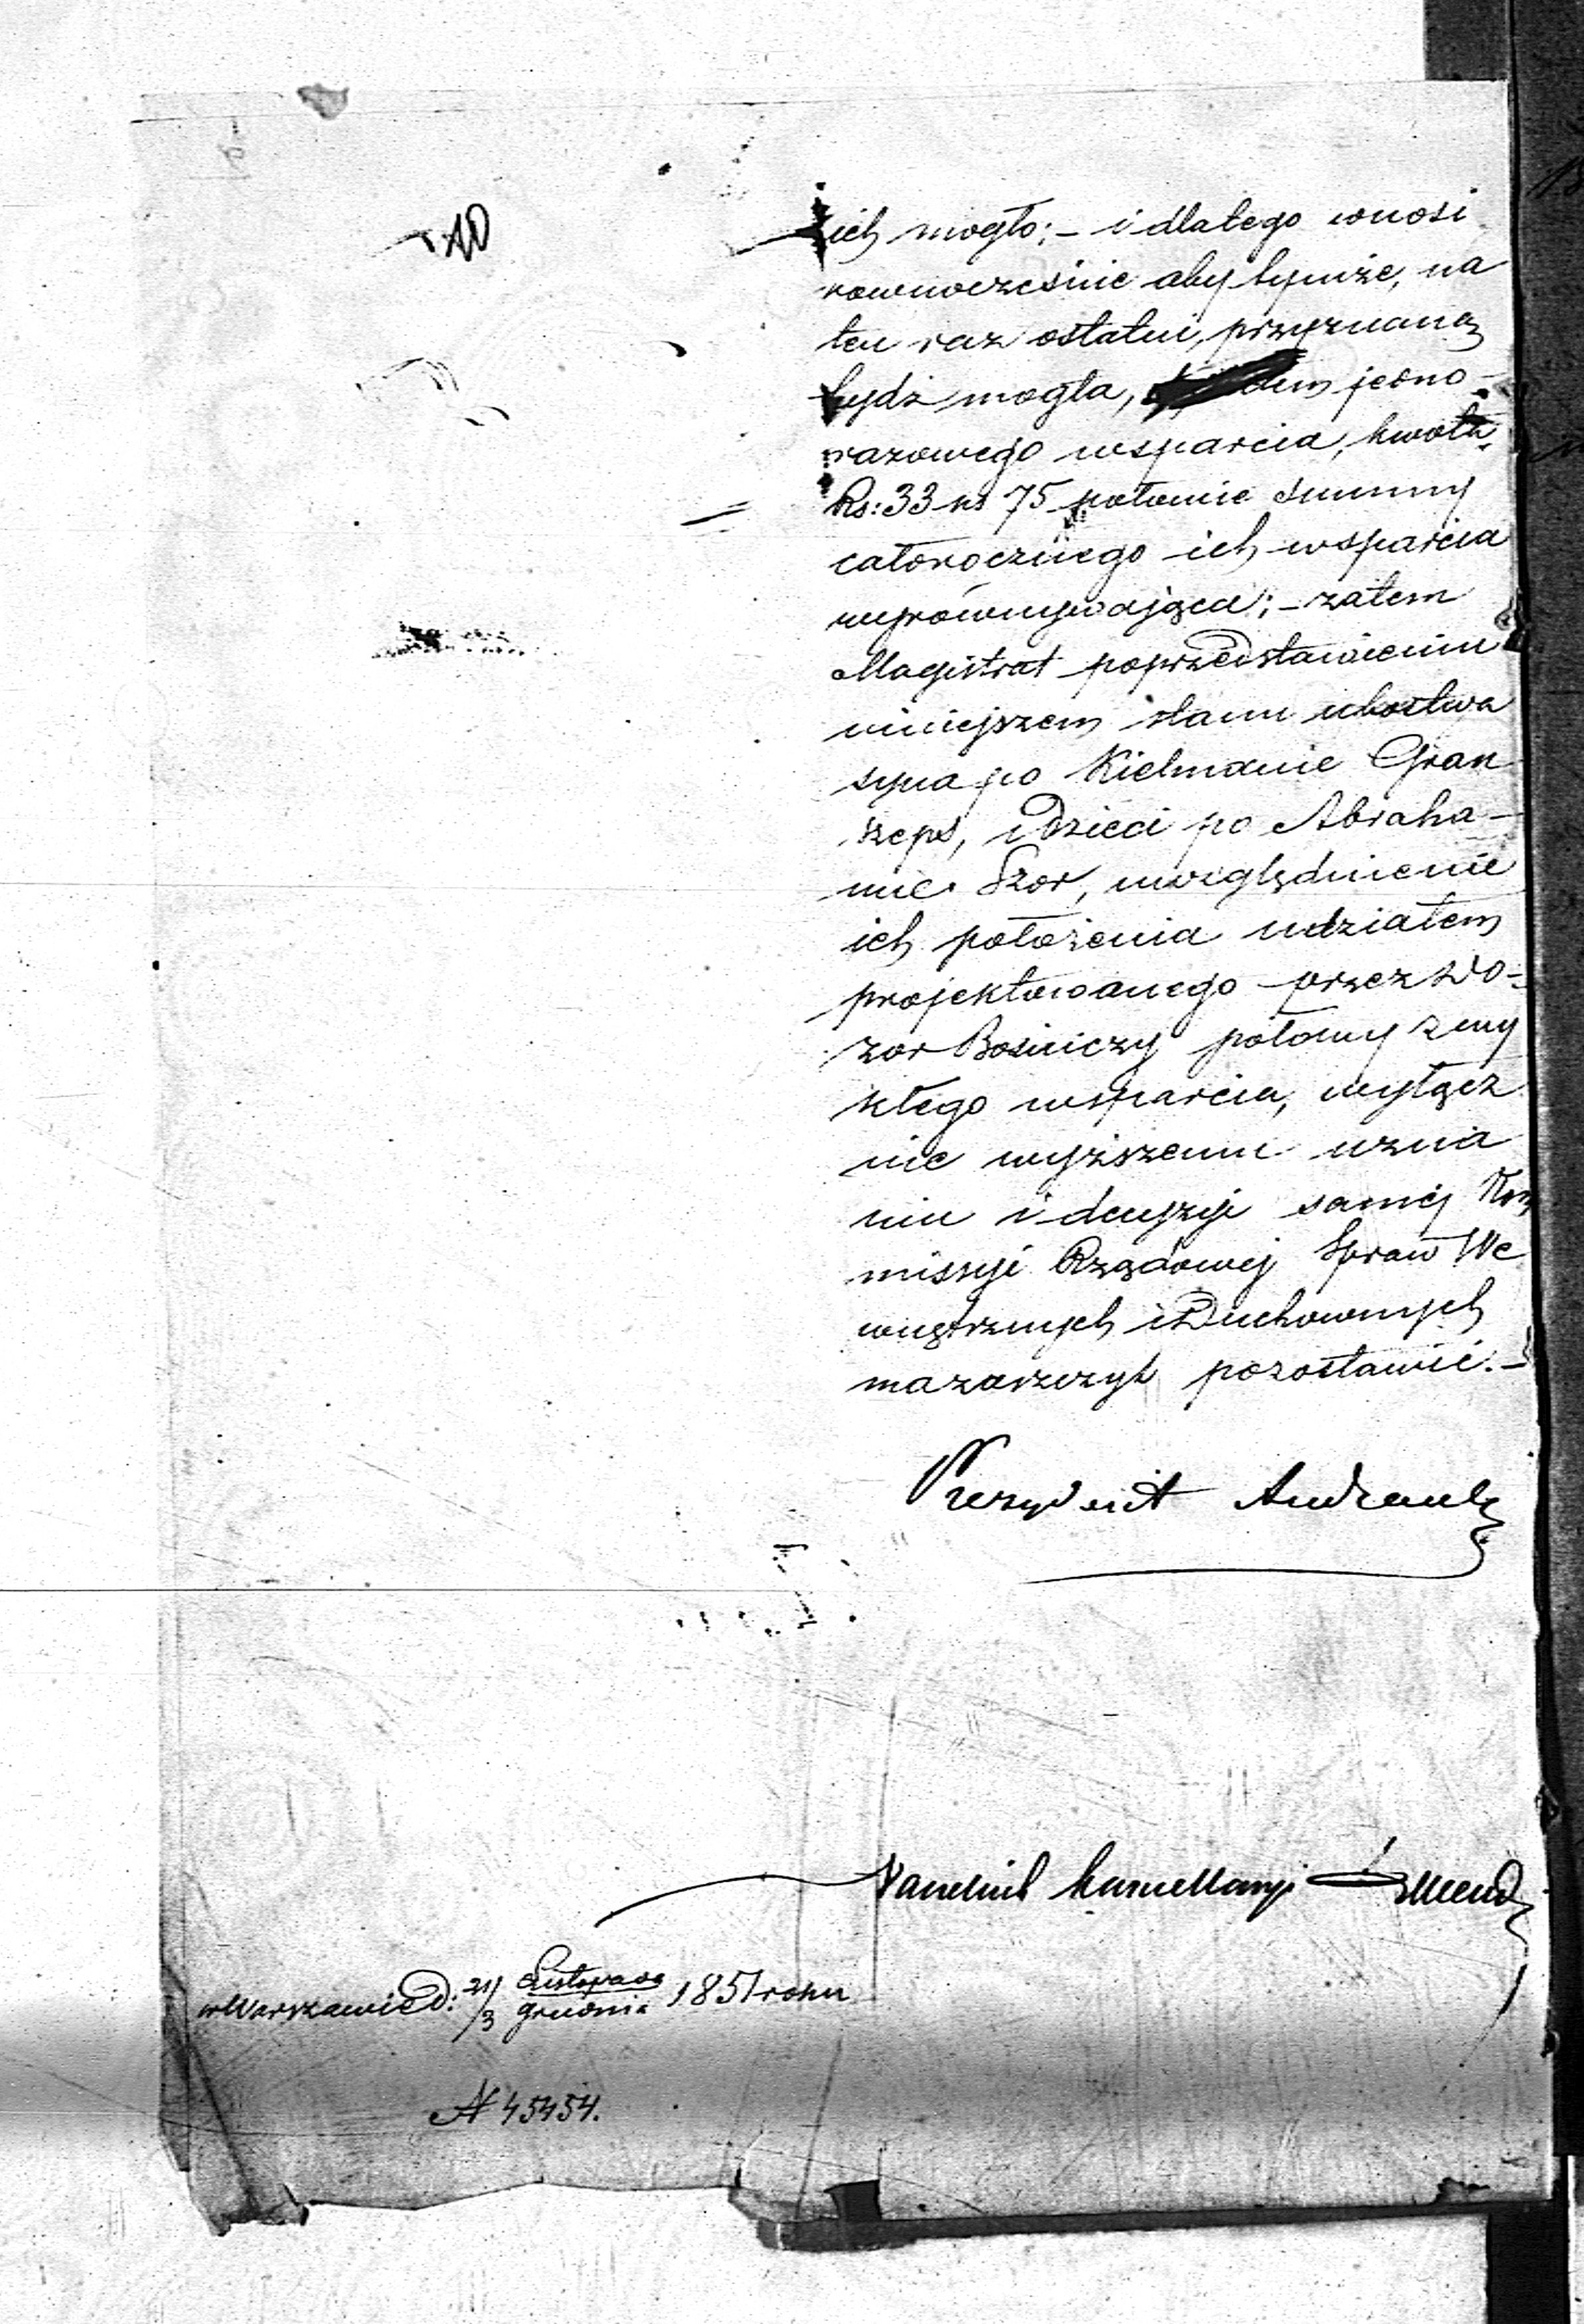 10
ich mogło; – i dlatego wnosi
rownocześnie aby tymże, na
ten raz ostatni, przyznaną
bydź mogła, jedno-
razowego wsparcia, kwota
Rs: 33 ks 75 połowie summy
całorocznego ich wsparcia
wyrównywająca; – zatem
Magistrat po przedstawieniu
niniejszem stanu ubostwa
syna po Kielmanie Gran
szeps, i Dzieci po Abraha-
mie Szor, uwzględnienie
ich położenia udziałem
projektowanego przez Do-
zor Bożniczy połowy zwy
kłego wsparcia, wyłącz
nie wyższemu uzna
niu i decyzyi samej Kom
missyi Rządowej Spraw We
wnętrznych i Duchownych
ma zaszczyt pozostawić. –
Prezydent Andrault
Naczelnik Kancellaryi
w Warszawie D: 21/3 Listopada/grudnia 1851 roku
N 45454.